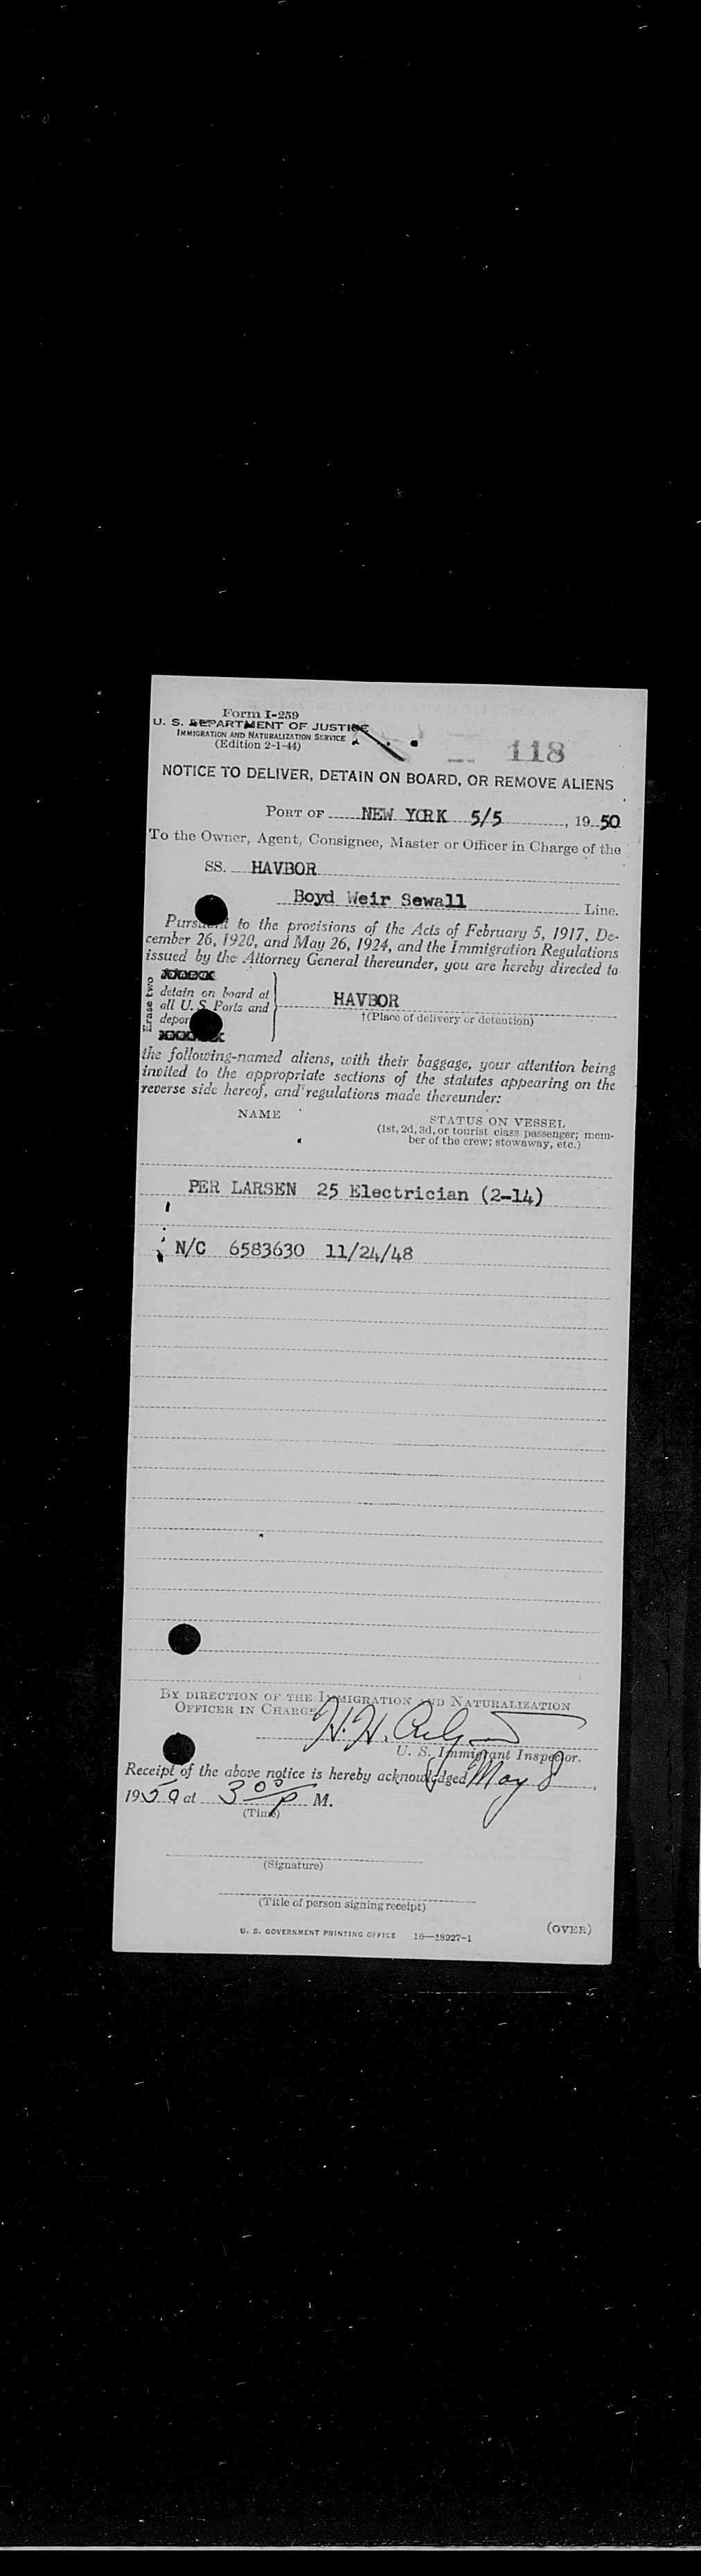 Form I-259
U. S. DEPARTMENT OF JUSTICE
IMMIGRATION AND NATURALIZATION SERVICE
(Edition 2-1-44)
118
NOTICE TO DELIVER, DETAIN ON BOARD, OR REMOVE ALIENS
PORT OF NEW YORK 5/5, 19 50
To the Owner, Agent, Consignee, Master or Officer in Charge of the
SS. HAVBOR
Boyd Weir Sewall Line.
Pursuant to the provisions of the Acts of February 5, 1917, De-
cember 26, 1920, and May 26, 1924, and the Immigration Regulations
issued by the Attorney General thereunder, you are hereby directed to
Erase two
detain on board at
all U. S. Ports and
depor
HAVBOR
†(Place of delivery or detention)
the following-named aliens, with their baggage, your attention being
invited to the appropriate sections of the statutes appearing on the
reverse side hereof, and regulations made thereunder:
NAME
STATUS ON VESSEL
(1st, 2d, 3d, or tourist class passenger; mem-
ber of the crew; stowaway, etc.)
PER LARSEN 25 Electrician (2-14)
N/C 6583630 11/24/48
BY DIRECTION OF THE IMMIGRATION AND NATURALIZATION
OFFICER IN CHARGE
H. H.
U. S. Immigrant Inspector.
Receipt of the above notice is hereby acknowledged May 8,
1950 at 3 00 P M.
(Time)
(Signature)
(Title of person signing receipt)
U. S. GOVERNMENT PRINTING OFFICE 16—18927-1
(OVER)